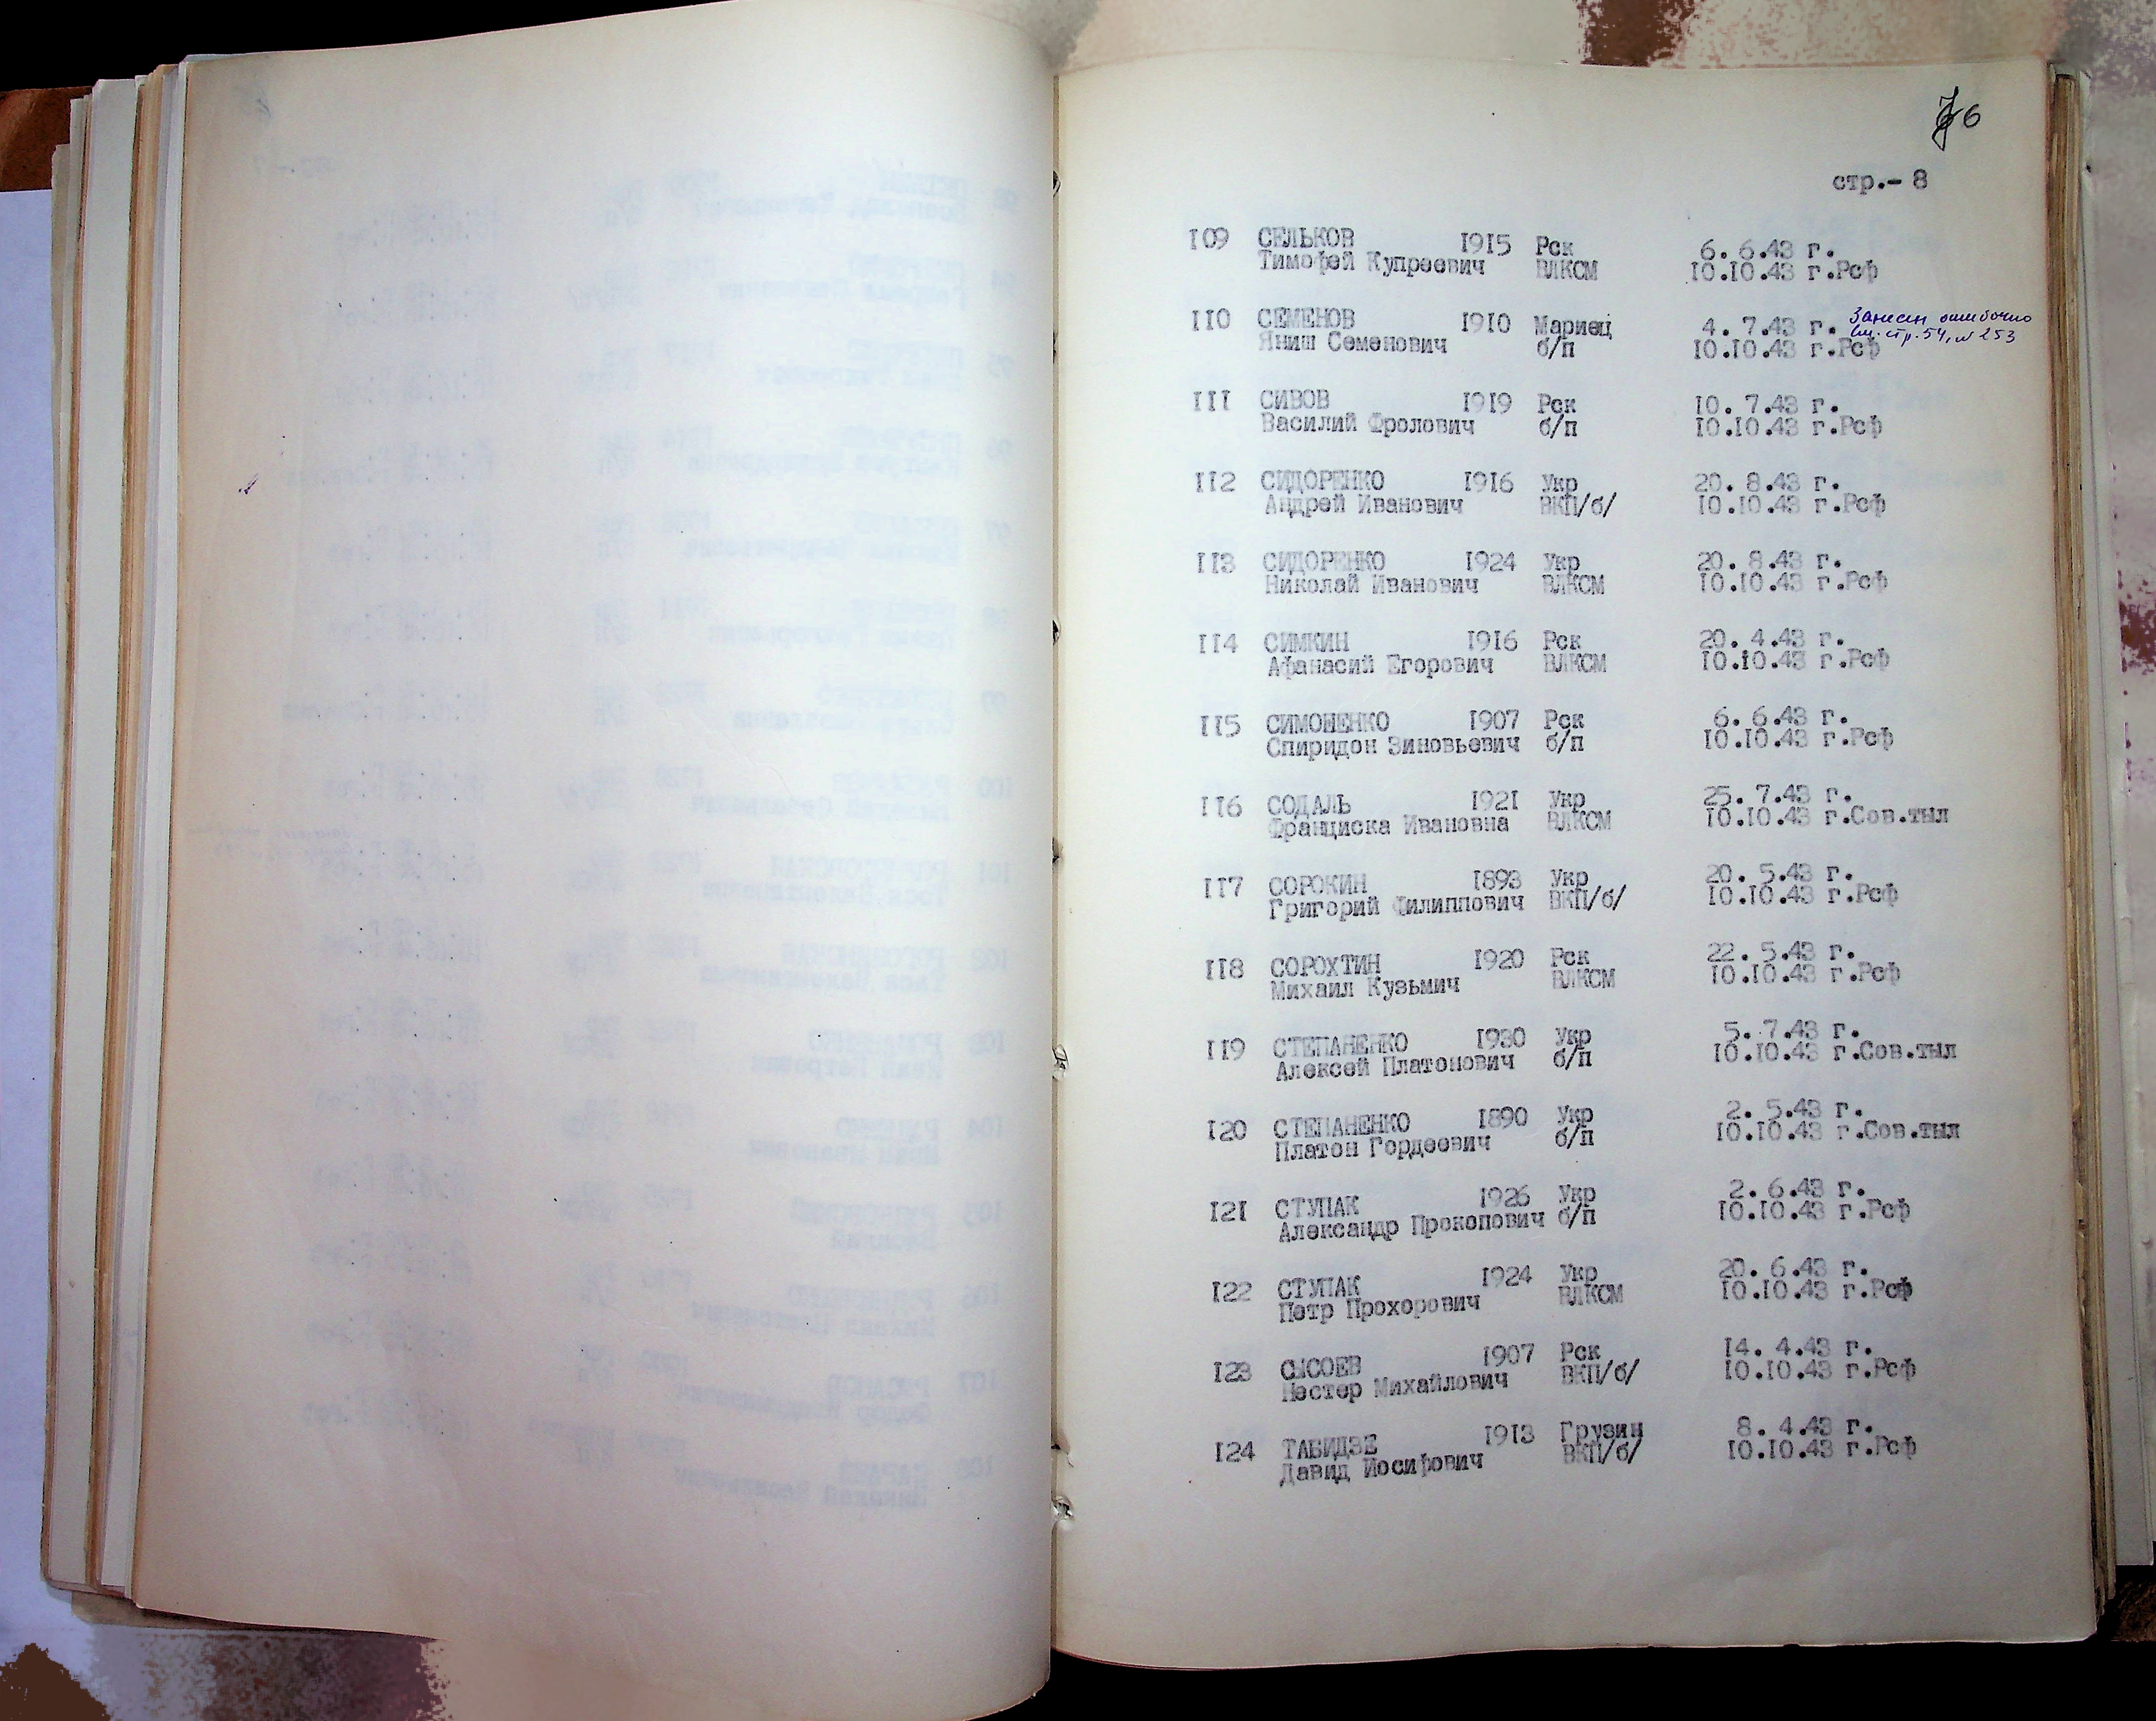 6
стр.- 8
109 СЕЛЬКОВ 1915 Рск 6. 6.43 г.
Тимофей Купреевич ВЛКСМ 10.10.43 г.Рсф
110 СЕМЕНОВ 1910 Мариец 4. 7.43 г. Занесен ошибочно
Яниш Семенович б/п 10.10.43 г.Рсф см. стр. 54, № 253
111 СИВОВ 1919 Рск 10. 7.43 г.
Василий Фролович б/п 10.10.43 г.Рсф
112 СИДОРЕНКО 1916 Укр 20. 8.43 г.
Андрей Иванович ВКП/б/ 10.10.43 г.Рсф
113 СИДОРЕНКО 1924 Укр 20. 8.43 г.
Николай Иванович ВЛКСМ 10.10.43 г.Рсф
114 СИМКИН 1916 Рск 20. 4.43 г.
Афанасий Егорович ВЛКСМ 10.10.43 г.Рсф
115 СИМОНЕНКО 1907 Рск 6. 6.43 г.
Спиридон Зиновьевич б/п 10.10.43 г.Рсф
116 СОДАЛЬ 1921 Укр 25. 7.43 г.
Франциска Ивановна ВЛКСМ 10.10.43 г.Сов.тыл
117 СОРОКИН 1893 Укр 20. 5.43 г.
Григорий Филиппович ВКП/б/ 10.10.43 г.Рсф
118 СОРОХТИН 1920 Рск 22. 5.43 г.
Михаил Кузьмич ВЛКСМ 10.10.43 г.Рсф
119 СТЕПАНЕНКО 1930 Укр 5. 7.43 г.
Алексей Платонович б/п 10.10.43 г.Сов.тыл
120 СТЕПАНЕНКО 1890 Укр 2. 5.43 г.
Платон Гордеевич б/п 10.10.43 г.Сов.тыл
121 СТУПАК 1926 Укр 2. 6.43 г.
Александр Прокопович б/п 10.10.43 г.Рсф
122 СТУПАК 1924 Укр 20. 6.43 г.
Петр Прохорович ВЛКСМ 10.10.43 г.Рсф
123 СЫСОЕВ 1907 Рск 14. 4.43 г.
Нестер Михайлович ВКП/б/ 10.10.43 г.Рсф
124 ТАБИДЗЕ 1913 Грузин 8. 4.43 г.
Давид Иосифович ВКП/б/ 10.10.43 г.Рсф